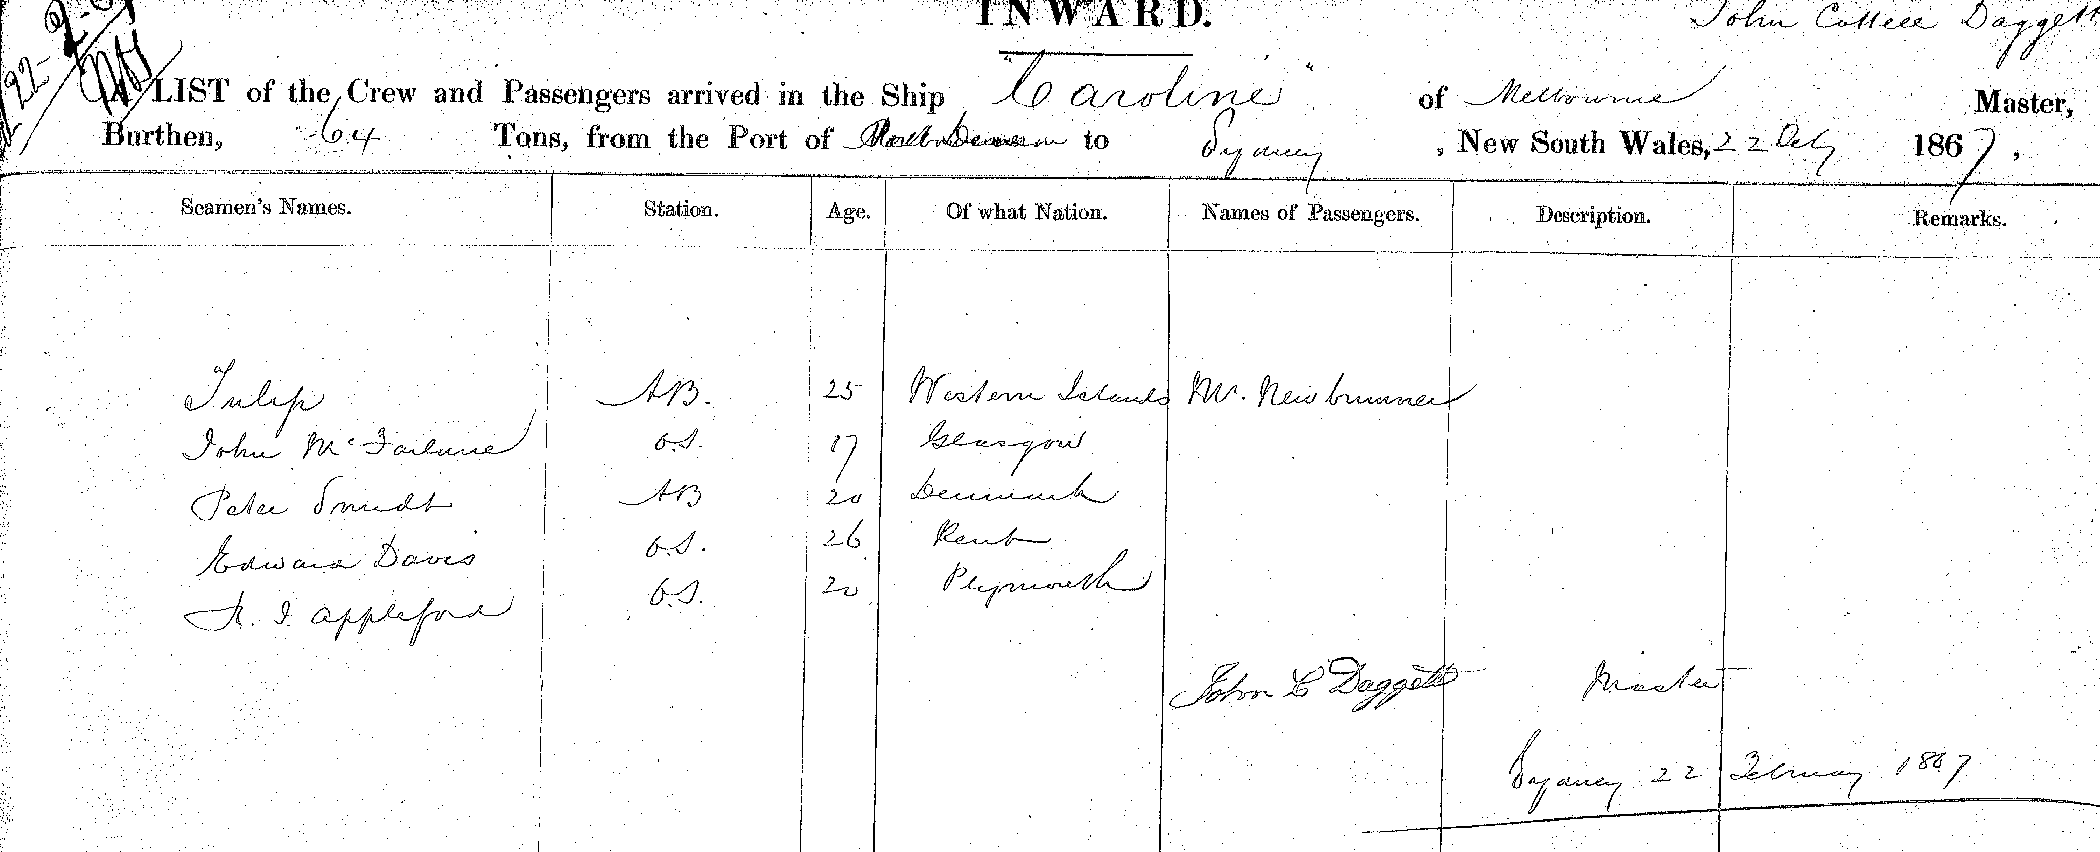 INWARD.
John Cottell Daggett
A LIST of the Crew and Passengers arrived in the Ship "Caroline" of Melbourne Master,
Burthen, 64 Tons, from the Port of Port Denison to Sydney, New South Wales, 22 Feby 1867.
Seamen's Names. Station. Age. Of what Nation. Names of Passengers. Description. Remarks.
Tulip AB. 25 Western Islands Mr. Newbrunner
John McFarlane O.S. 17 Glasgow
Peter Smidt AB 20 Denmark
Edward Davis O.S. 26 Kent
A. J. Appleford O.S. 20 Plymouth
John C Daggett Master
Sydney 22 February 1867